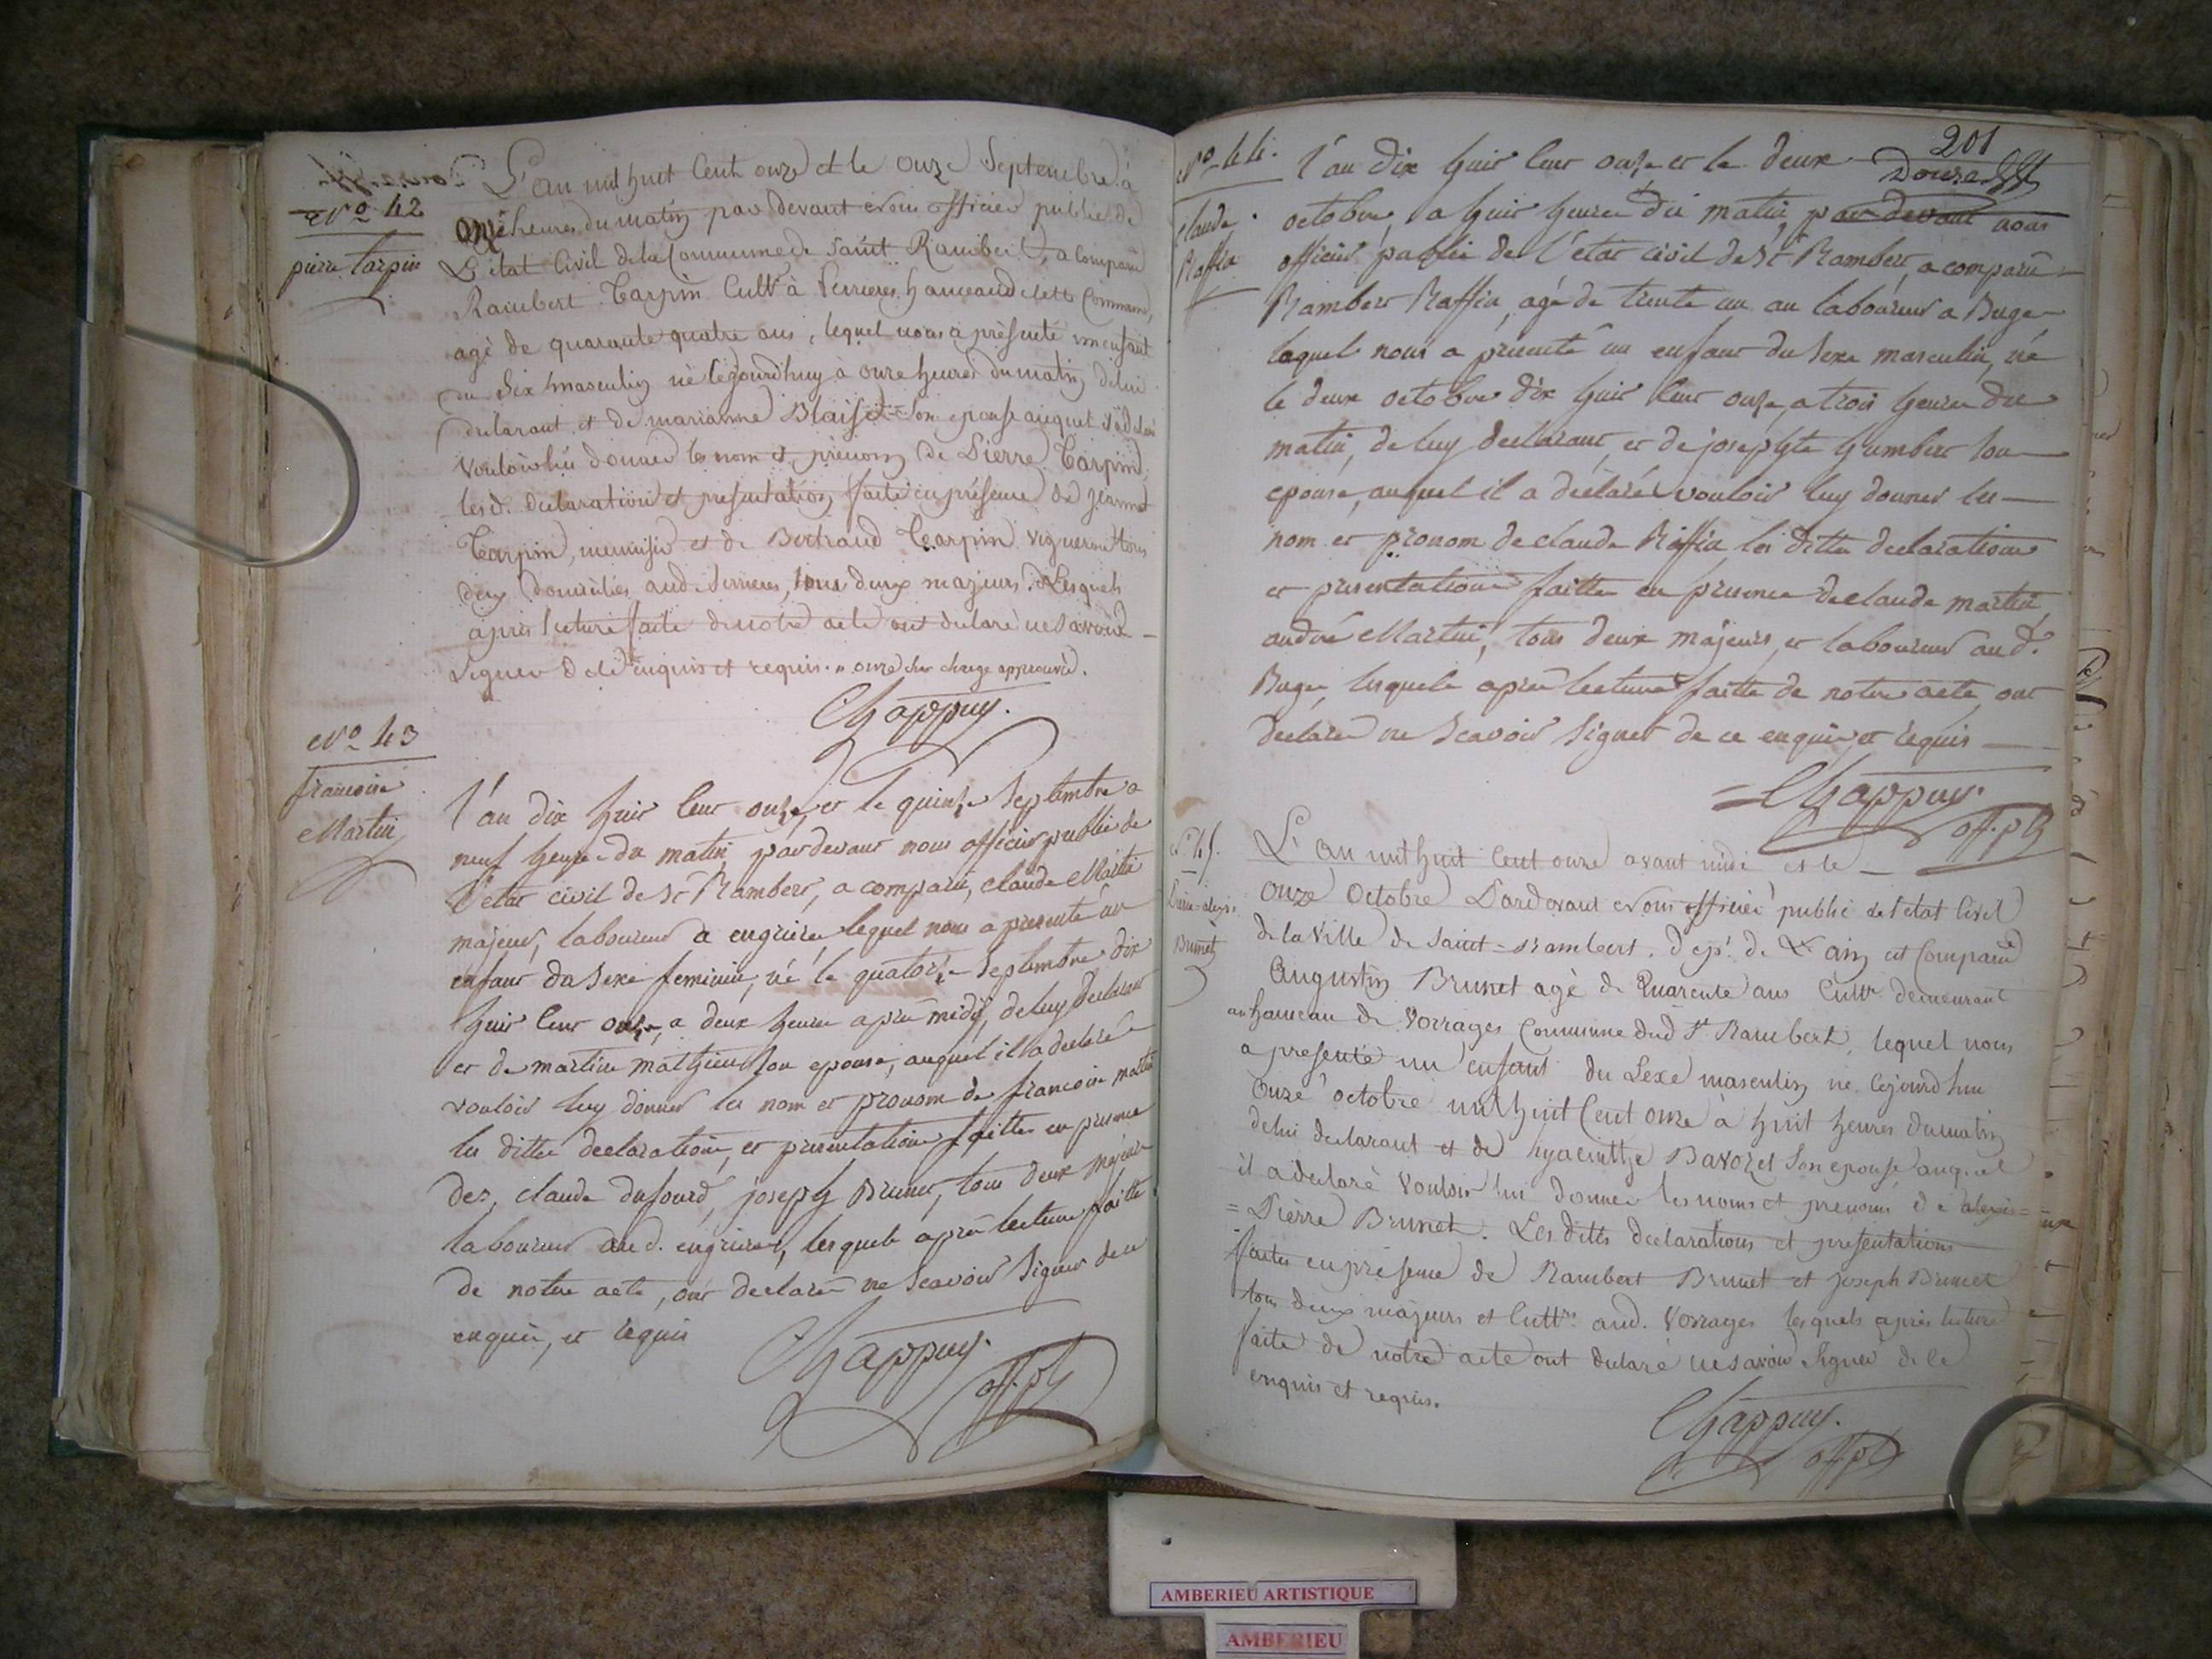 N.o 42
pierre tarpin
L'an mil huit Cent onze et le onze Septembre à
onze heures du matin par devant Nous officier public de
L'état Civil de la Commune de Saint Rambert, a Comparu
Rambert Tarpin Cultr à Serrieres hameau de cette Commune,
agé de quarante quatre ans, lequel nous a présenté un enfant
du Sexe masculin né Cejourd'huy à onze heures du matin de lui
declarant et de marianne Blaise Son epouse auquel il a déclaré
vouloir lui donner le nom et prénom de Pierre Tarpin,
lesd. declaration et presentation faite en présence de
Tarpin, menuisier et de Bertrand Tarpin vigneron tous
deux domiciliés aud. Serrieres, tous deux majeurs. Lesquels
après lecture faite de notre acte ont déclaré ne Savoir
Signer de ce enquis et requis. " onze Sur charge approuvé.
Chappuy.
N.o 43
francoise
Martin
l'an dix huit Cent onze, et le quinze Septembre a
neuf heure du matin, pardevant nous officier public de
l'état civil de St Rambert, a comparu, claude Martin
majeur, laboureur a engriere lequel nous a presenté un
enfant du Sexe feminin, né le quatorze Septembre dix
huit Cent onze, a deux heure apres midy, de luy declarant
et de martine mathieu Son epouse, auquel il a declaré
vouloir luy donner les nom et pronom de francoise martin
les dittes declaration, et presentation faittes en presence
des, claude dufourd, joseph Brunet, tous deux majeurs
laboureur aud. engrieres, lesquels apres lecture faitte
de notre acte, ont declaré ne Scavoir Signer de ce
enquis, et requis
Chappuy.
off. pb
201
Douze
N.o 44.
claude
Raffin
l'an dix huit Cent onze et le deux
octobre, a huit heures du matin, par devant nous
officier public de l'état civil de St Rambert, a comparu
Rambert Raffin, agé de trente un an laboureur a Buge
lequel nous a presenté un enfant du Sexe masculin, né
le deux octobre dix huit Cent onze, a trois heures du
matin, de luy declarant, et de josephte humbert Son
epouse, auquel il a déclaré vouloir luy donner les
nom et pronom de claude Raffin les dittes declaration
et presentation faittes en presence de claude martin,
andré Martin, tous deux majeurs, et laboureur aud.
Buge, lesquels apres lecture faitte de notre acte, ont
declaré ne Scavoir Signer de ce enquis, et requis
Chappuy.
off. pb
N.o 45.
Pierre-alexis
Brunet
L'an mil huit Cent onze avant midi et le
onze Octobre Pardevant Nous officier public de l'état Civil
de la Ville de Saint-Rambert, dept. de L'ain est Comparu
Augustin Brunet agé de Quarente ans Cultr demeurant
au hameau de Vorrages Commune dud St Rambert, lequel nous
a presenté un enfant du Sexe masculin né Cejourd'hui
onze octobre mil huit Cent onze à huit heures du matin
de lui declarant et de hyacinthe Bavozet Son epouse auquel
il a declaré vouloir lui donner les noms et prenoms de alexis=
=Pierre Brunet. Les dittes declarations et presentations
faites en présence de Rambert Brunet et Joseph Brunet
tous deux majeurs et Cultrs aud. Vorrages lesquels après lecture
faite de notre acte ont declaré ne Savoir Signer de Ce
enquis et requis.
Chappuy.
off. pb
AMBERIEU ARTISTIQUE
AMBERIEU